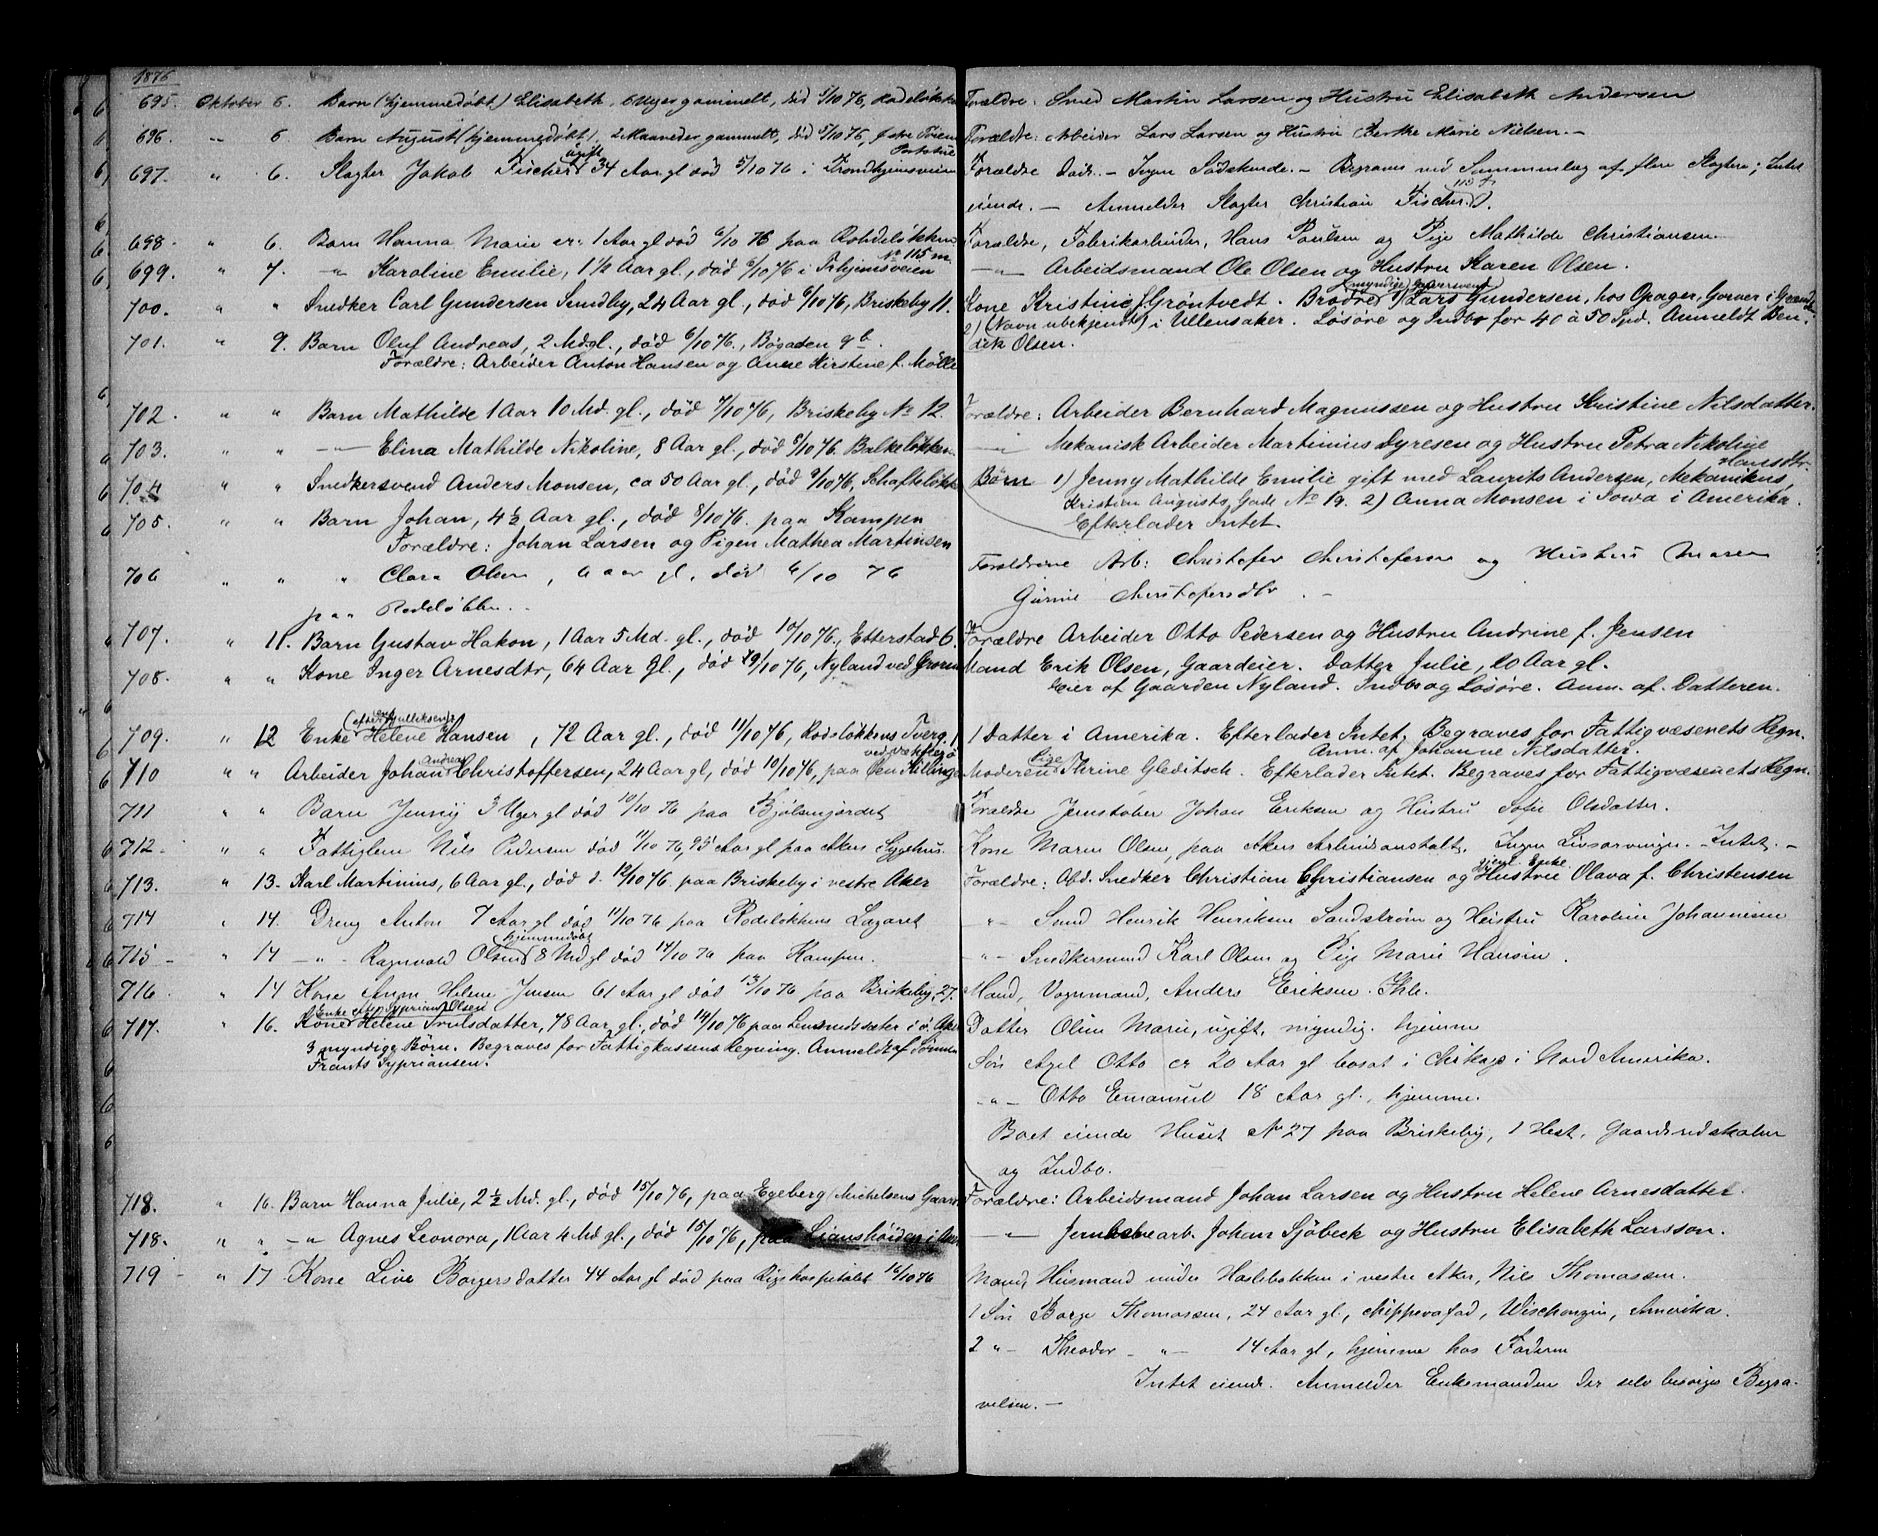 1876
695. Oktober 6. Barn (hjemmedøbt) Elisabeth, 6 Uger gammelt, død 5/10 76, Rodeløkken
Forældre: Smed Martin Larsen og Hustru Elisabeth Andersen
696. — 6. Barn August (hjemmedøbt), 2 Maaneder gammelt, død 5/10 76, Østre
Forældre: Arbeider Lars Larsen og Hustru Berthe Marie Nielsen. —
697. " 6. Slagter Jakob Fischer (ugift) 34 Aar gl død 5/10 76 i Trondhjemsveien
Forældre døde. — Ingen Sødskende. — Begraves ved Sammenlag af flere Slagtere; Intet
eiende. — Anmelder Slagter Christian Fischer.
698. " 6. Barn Hanna Marie 1 Aar gl død 6/10 76 paa Rohdeløkken
Forældre, Fabrikarbeider, Hans Paulsen og Pige Mathilde Christiansen.
699. " 7. —"— Karoline Emilie, 1 1/2 Aar gl., død 6/10 76 i Trhjemsveien No 115
—"— Arbeidsmand Ole Olsen og Hustru Karen Olsen.
700. " " Snedker Carl Gundersen Sundby, 24 Aar gl., død 6/10 76, Briskeby 11.
Kone Kristine f. Grøntvedt. Brødre (myndige) 1) Lars Gundersen, hos Opager, Garver i
2) (Navn ubekjendt) i Ullensaker. Løsøre og Indbo for 40 à 50 Spd. Anmeldt
Olsen.
701. " 9. Barn Oluf Andreas, 2 Md gl., død 6/10 76, Bøgaden 9b.
Forældre: Arbeider Anton Hansen og Anne Kirstine f. Mølle
702. " " Barn Mathilde 1 Aar 10 Md. gl., død 7/10 76, Briskeby No 12.
Forældre: Arbeider Bernhard Magnussen og Hustru Kristine Nilsdatter.
703. " " —"— Elina Mathilde Nikoline, 8 Aar gl., død 5/10 76. Balkeløkken
—"— Mekanisk Arbeider Martinius Dyresen og Hustru Petra Nikoline
Hansdtr.
704 " " Snedkersvend Anders Monsen, ca 50 Aar gl., død 9/10 76, Schafteløkken
Børn 1) Jenny Mathilde Emilie gift med Laurits Andersen, Mekanikus,
Kristian Augusts Gade No 19. 2) Anna Monsen i Iowa i Amerika.
Efterlader Intet.
705. " " Barn Johan, 4 1/2 Aar gl., død 8/10 76. paa Kampen
Forældre: Johan Larsen og Pigen Mathea Martinsen
706 " " " Clara Olsen, 6 aar gl, død 6/10 76
paa Rodeløkken.
Forældrene Arb: Christofer Christofersen og Hustru Maren
Gurine Christofersdtr. —
707. " 11. Barn Gustav Hakon, 1 Aar 5 Md. gl., død 10/10 76, Etterstad 6.
Forældre Arbeider Otto Pedersen og Hustru Andrine f. Jensen
708. " " Kone Inger Arnesdtr, 64 Aar gl., død 9/10 76, Nyland ved
Mand Erik Olsen, Gaardeier. Datter Julie, 20 Aar gl.
Eier af Gaarden Nyland. Indbo og Løsøre. Anm. af. Datteren.
709. " 12 Enke Helene Hansen, 72 Aar gl., død 11/10 76, Rodeløkkens Tverg. 1
1 Datter i Amerika. Efterlader Intet. Begraves for Fattigvæsenets Regn.
Anm. af Johanne Nilsdatter.
710 " " Arbeider Johan Andreas Christoffersen, 24 Aar gl., død 10/10 76, paa Øen
Moderen Pige Thrine Gleditsch. Efterlader Intet. Begraves for Fattigvæsenets Regn.
711 " " Barn Jenny 3 Uger gl død 10/10 76 paa Bjølsenjordet
Forældre Jernstøber Johan Eriksen og Hustru Sofie Olsdatter.
712. " " Fattiglem Nils Pedersen død 11/10 76, 95 Aar gl paa Akers Sygehus.
Kone Maren Olsen, paa Akers Arbeidsanstalt. Ingen Livsarvinger. — Intet. —
713. " 13. Karl Martinius, 6 Aar gl., død d. 12/10 76. paa Briskeby i vestre Aker
Forældre: Abd. Snedker Christian Christiansen og Hustru Olava f. Christensen
714 " 14. Dreng Anton 7 Aar gl død 11/10 76 paa Rodeløkkens Lazaret
—"— Smed Henrik Henriksen Sandstrøm og Hustru Karoline Johannesen
715 — " 14 —"— Ragnvald Olsen (hjemmedøbt) 8 Md gl død 14/10 76 paa Kampen.
—"— Snedkersvend Karl Olsen og Pige Marie Hansen.
716. " 14 Kone Anne Helene Jensen 61 Aar gl død 13/10 76 paa Briskeby, 27.
Mand, Vognmand, Anders Eriksen.
Datter Oline Marie, ugift, myndig. hjemme
Søn Axel Otto er 20 Aar gl bosat i Chikago i Nord Amerika.
—"— Otto Emanuel 18 Aar gl., hjemme.
Boet eiende Huset No 27 paa Briskeby, 1 Hest, Gaardsredskaber
og Indbo.
717. " 16. Kone Helene Trulsdatter, 78 Aar gl., død 14/10 76 paa
3 myndige Børn. Begraves for Fattigkassens Regning. Anmeldt af Sønnen
Frants Sypriansen.
718. " 16. Barn Hanna Julie, 2 1/2 Md. gl., død 15/10 76, paa Egeberg (Michelsens Gaard
Forældre: Arbeidsmand Johan Larsen og Hustru Helene Arnesdatter.
718. " " —"— Agnes Leonora, 1 Aar 4 Md gl., død 15/10 76, paa
—"— Johan Sjöbeck og Hustru Elisabeth Larsson.
719 — " 17 Kone Live Borgersdatter 44 Aar gl død paa Rigshospitalet 16/10 76
Mand, Husmand under Haslebakken i vestre Aker, Nils Thomassen.
1 Søn Borge Thomassen, 24 Aar gl., Amerika.
2 "— Theodor —"— 14 Aar gl, hjemme hos Faderen
Intet eiende. Anmelder Enkemanden der selv besørger Begra-
velsen. —